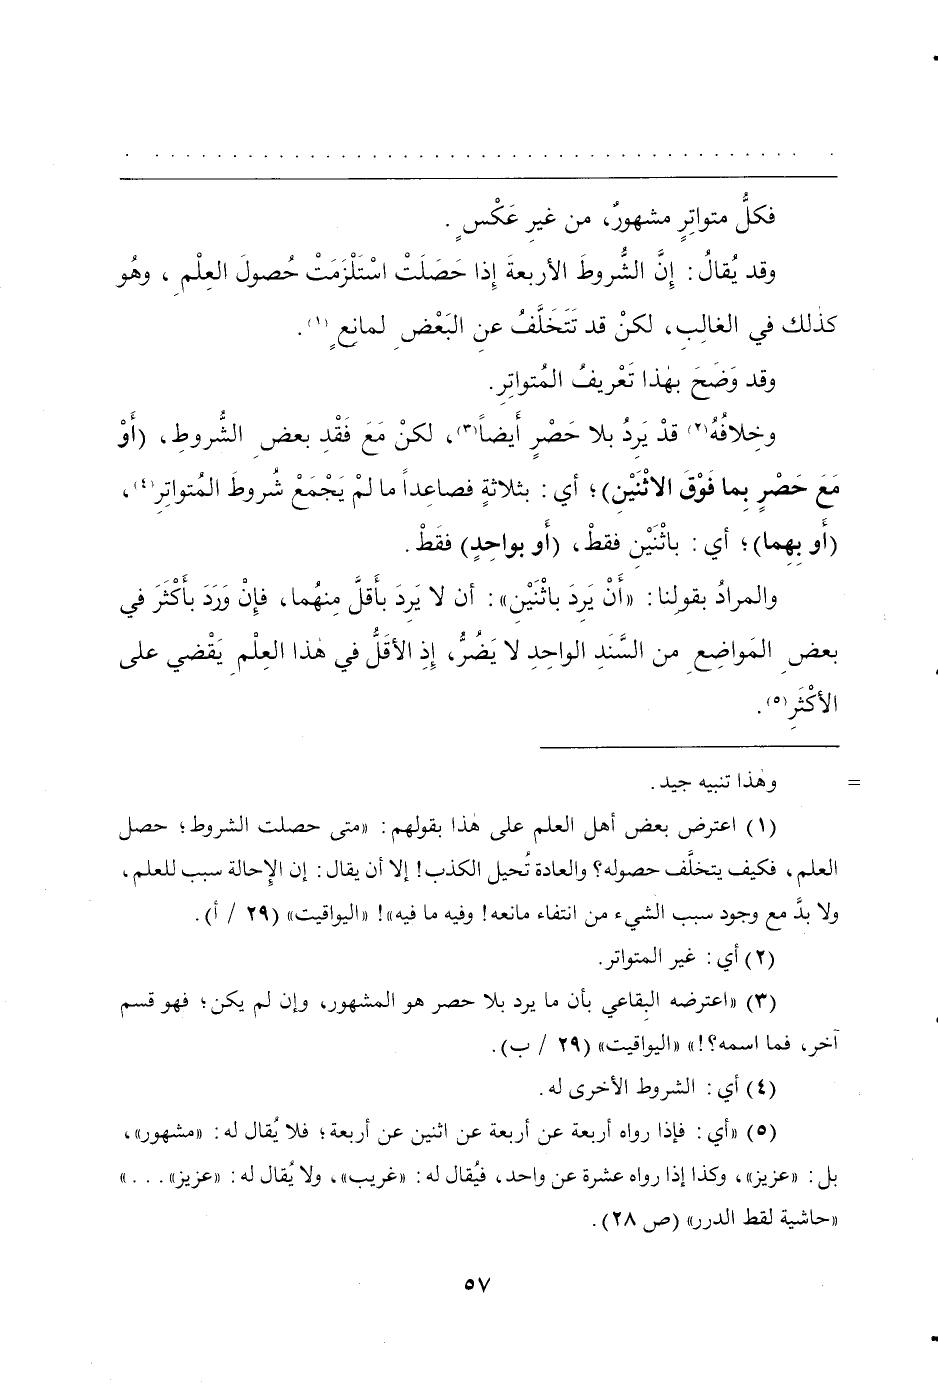 فكلُّ متواترٍ مشهورٌ، من غيرِ عَكْسٍ.
وقد يُقالُ: إنَّ الشُّروطَ الأربعةَ إذا حَصَلَتْ اسْتَلْزَمَتْ حُصولَ العِلْمِ، وهُو
كذلك في الغالِبِ، لكنْ قد تَتَخَلَّفُ عنِ البَعْضِ لمانعٍ(١).
وقد وَضَحَ بهٰذا تَعْريفُ المُتواتِرِ.
وخِلافُهُ(٢) قدْ يَرِدُ بلا حَصْرٍ أَيضاً(٣)، لكنْ مَعَ فَقْدِ بعضِ الشُّروطِ، (أَوْ
مَعَ حَصْرٍ بِما فَوْقَ الاثْنَيْنِ)؛ أي: بثلاثةٍ فصاعِداً ما لمْ يَجْمَعْ شُروطَ المُتواتِرِ(٤)،
(أَو بِهِما)؛ أي: باثْنَيْنِ فقطْ، (أَو بواحِدٍ) فقَطْ.
والمرادُ بقولِنا: «أَنْ يَرِدَ باثْنَيْنِ»: أن لا يَرِدَ بأَقلَّ مِنهُما، فإنْ وَرَدَ بأَكْثَرَ في
بعضِ المَواضِعِ من السَّنَدِ الواحِدِ لا يَضُرُّ، إذِ الأقَلُّ في هٰذا العِلْمِ يَقْضي على
الأكْثَرِ(٥).
= وهٰذا تنبيه جيد.
(١) اعترض بعض أهل العلم على هٰذا بقولهم: «متى حصلت الشروط؛ حصل
العلم، فكيف يتخلَّف حصوله؟ والعادة تُحيل الكذب! إلا أن يقال: إن الإحالة سبب للعلم،
ولا بدَّ مع وجود سبب الشيء من انتفاء مانعه! وفيه ما فيه»! «اليواقيت» (٢٩ / أ).
(٢) أي: غير المتواتر.
(٣) «اعترضه البقاعي بأن ما يرد بلا حصر هو المشهور، وإن لم يكن؛ فهو قسم
آخر، فما اسمه؟!» «اليواقيت» (٢٩ / ب).
(٤) أي: الشروط الأخرى له.
(٥) «أي: فإذا رواه أربعة عن أربعة عن اثنين عن أربعة؛ فلا يُقال له: «مشهور»،
بل: «عزيز»، وكذا إذا رواه عشرة عن واحد، فيُقال له: «غريب»، ولا يُقال له: «عزيز»...»
«حاشية لقط الدرر» (ص ٢٨).
٥٧